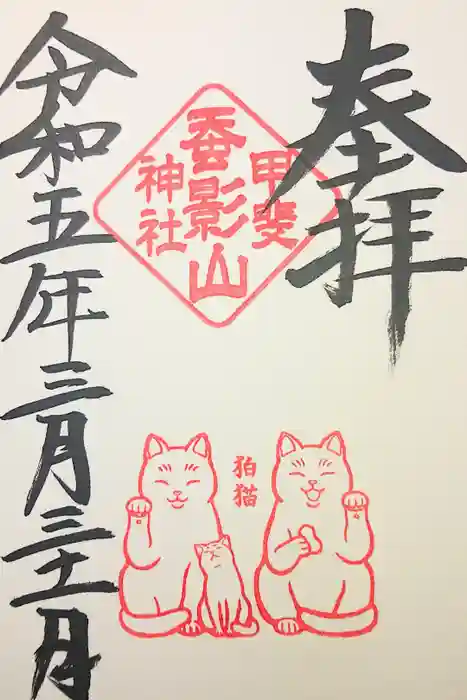 奉拝
甲斐
蚕影山
神社
狛猫
令和五年三月三十一日